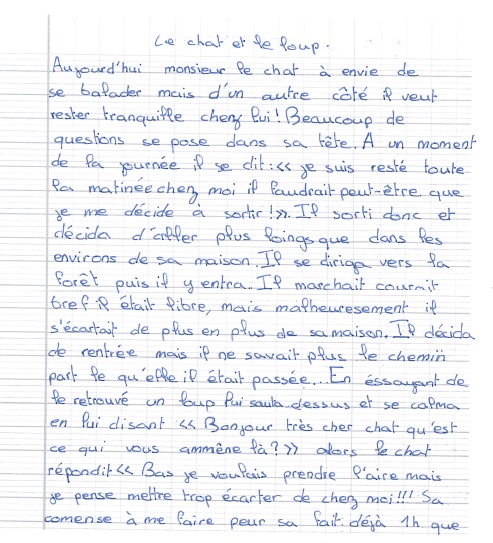 Le chat et le loup.
Aujourd'hui monsieur le chat à envie de
se balader mais d'un autre côté il veut
rester tranquille chez lui! Beaucoup de
questions se pose dans sa tête. A un moment
de la journée il se dit:<< je suis resté toute
la matinée chez moi il faudrait peut-être que
je me décide à sortir!>>. Il sorti donc et
décida d'aller plus loings que dans les
environs de sa maison. Il se dirigea vers la
forêt puis il y entra.. Il marchait courrait
bref il était libre, mais malheuresement il
s'écartait de plus en plus de sa maison. Il décida
de rentrée mais il ne savait plus le chemin
part le qu'elle il était passée... En éssayant de
le retrouvé un loup lui sauta dessus et se calma
en lui disant << Bonjour très cher chat qu'est
ce qui vous ammène là?>> alors le chat
répondit << Bas je voulais prendre l'aire mais
je pense mettre trop écarter de chez moi!!! Sa
comense à me faire peur sa fait déjà 1h que